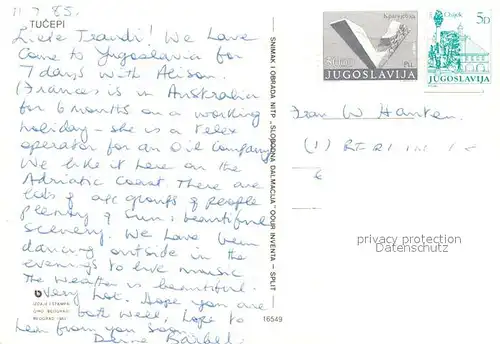 11.7.85.
TUČEPI
Liebe Traudi! We have
come to Yugoslavia for
7 days with Alison.
(Frances is in Australia
for 6 months on a working
holiday - she is a telex
operator for an oil company
We like it here on the
Adriatic Coast. There are
lots of age groups of people
plenty of sun, beautiful
scenery. We have been
dancing outside in the
evenings to live music
The weather is beautiful.
very hot. Hope you are
both well, hope to
hear from you soon.
Deine Bärbel
IZDAJE I ŠTAMPA
BEOGRAD
16549
SNIMAK I OBRADA NITP „SLOBODNA DALMACIJA" OOUR INVENTA — SPLIT
JUGOSLAVIJA
Osijek
5D
JUGOSLAVIJA
Frau W Hanken
(1)
privacy protection
Datenschutz